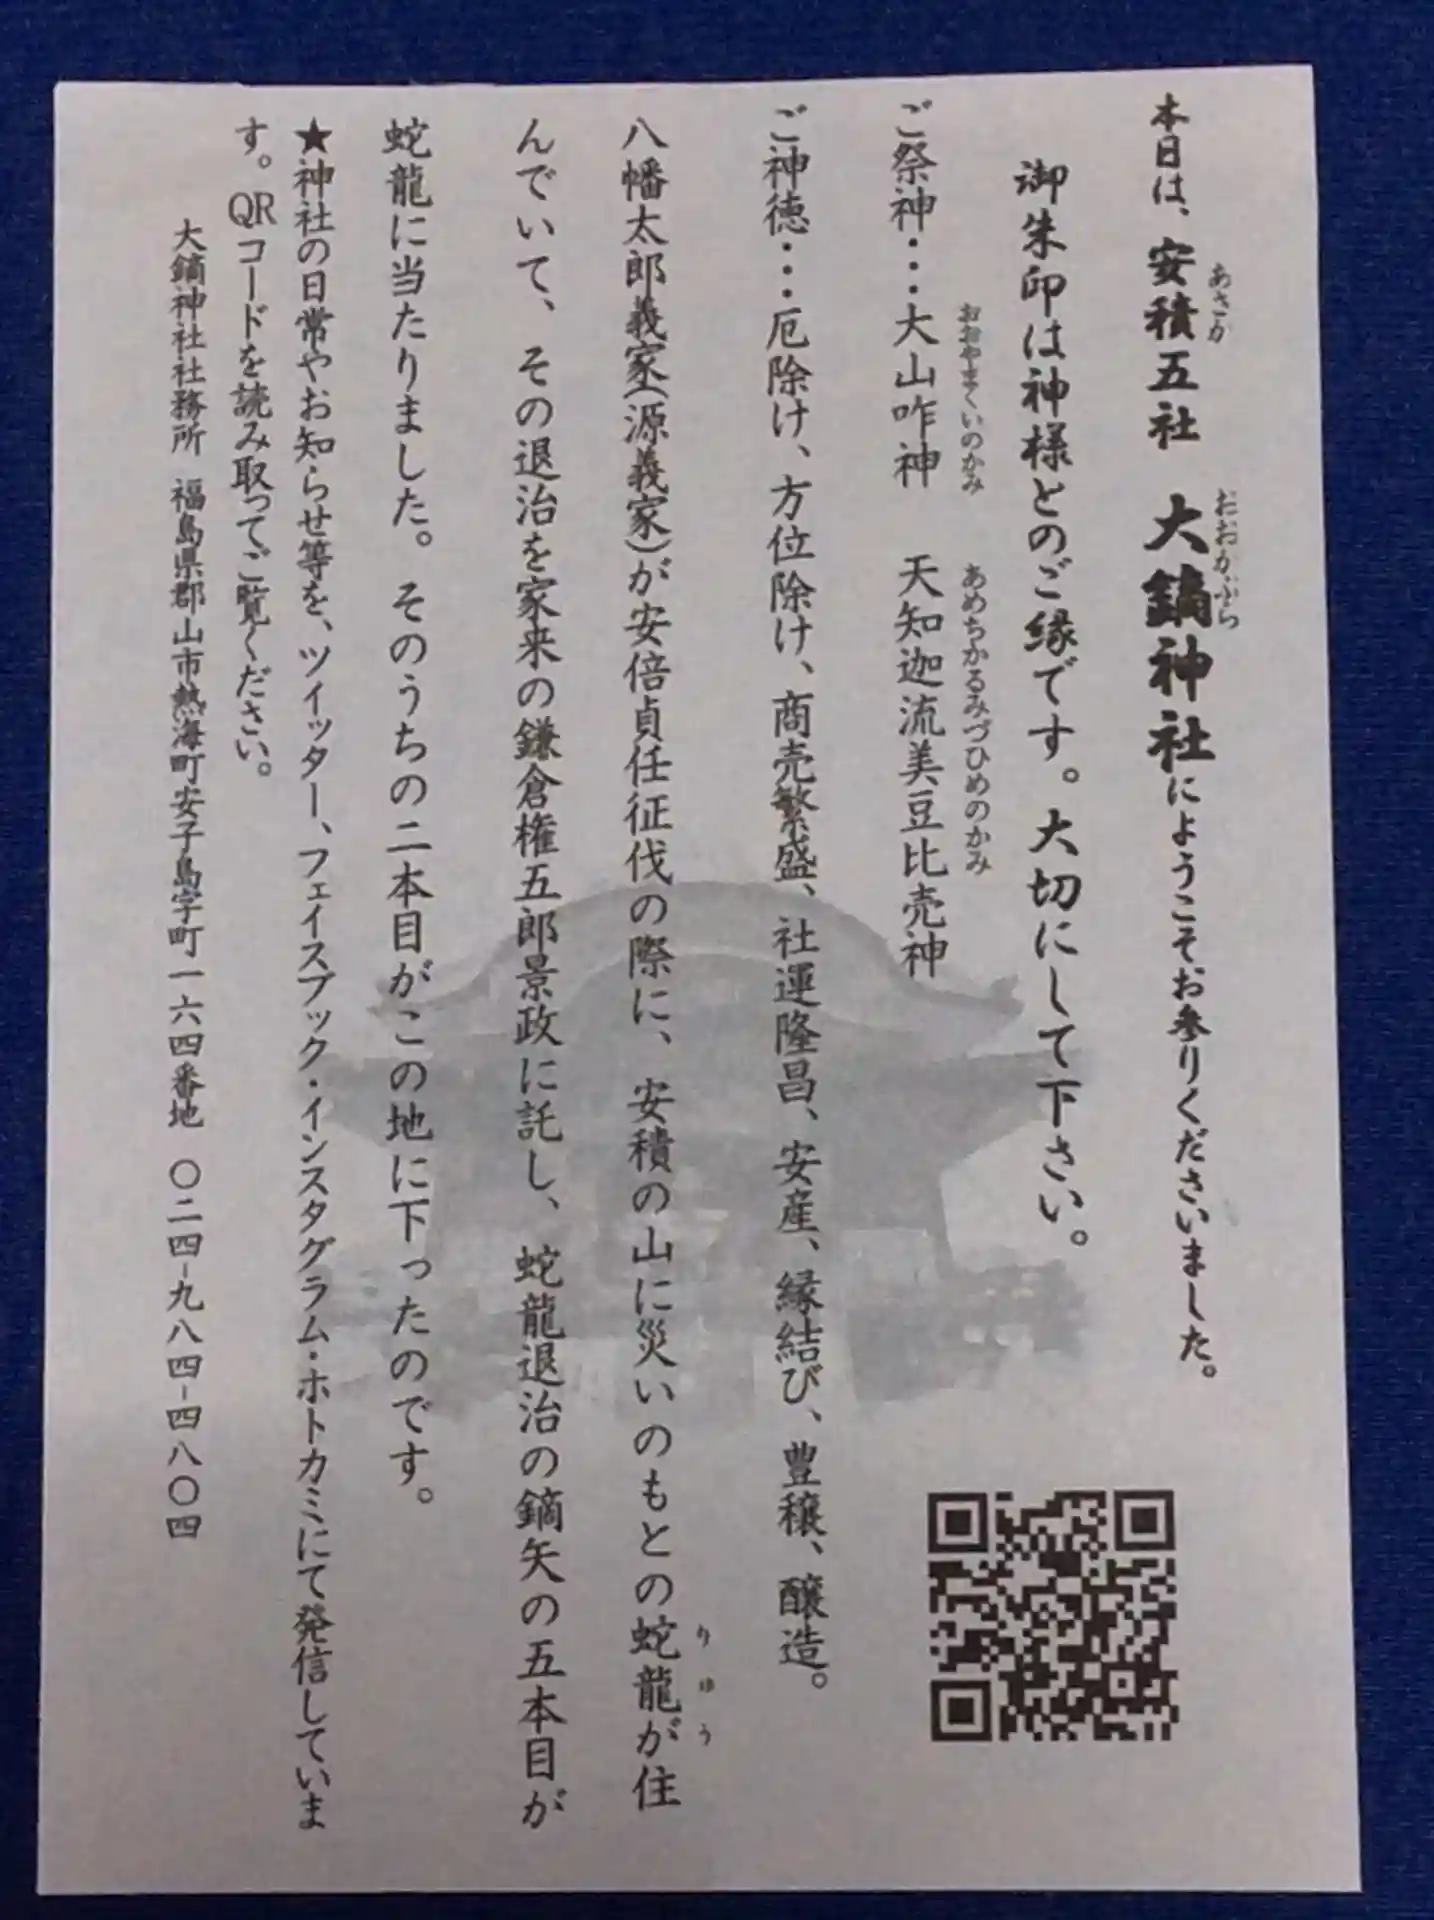 本日は、安積五社　大鏑神社にようこそお参りくださいました。
あさか
おおかぶら
御朱印は神様とのご縁です。大切にして下さい。
ご祭神・・・大山咋神　天知迦流美豆比売神
おおやまくいのかみ
あめちかるみづひめのかみ
ご神徳・・・厄除け、方位除け、商売繁盛、社運隆昌、安産、縁結び、豊穣、醸造。
八幡太郎義家（源義家）が安倍貞任征伐の際に、安積の山に災いのもとの蛇龍が住
りゅう
んでいて、その退治を家来の鎌倉権五郎景政に託し、蛇龍退治の鏑矢の五本目が
蛇龍に当たりました。そのうちの二本目がこの地に下ったのです。
★神社の日常やお知らせ等を、ツイッター、フェイスブック・インスタグラム・ホトカミにて発信していま
す。QRコードを読み取ってご覧ください。
大鏑神社社務所　福島県郡山市熱海町安子島字町一六四番地　〇二四-九八四-四八〇四